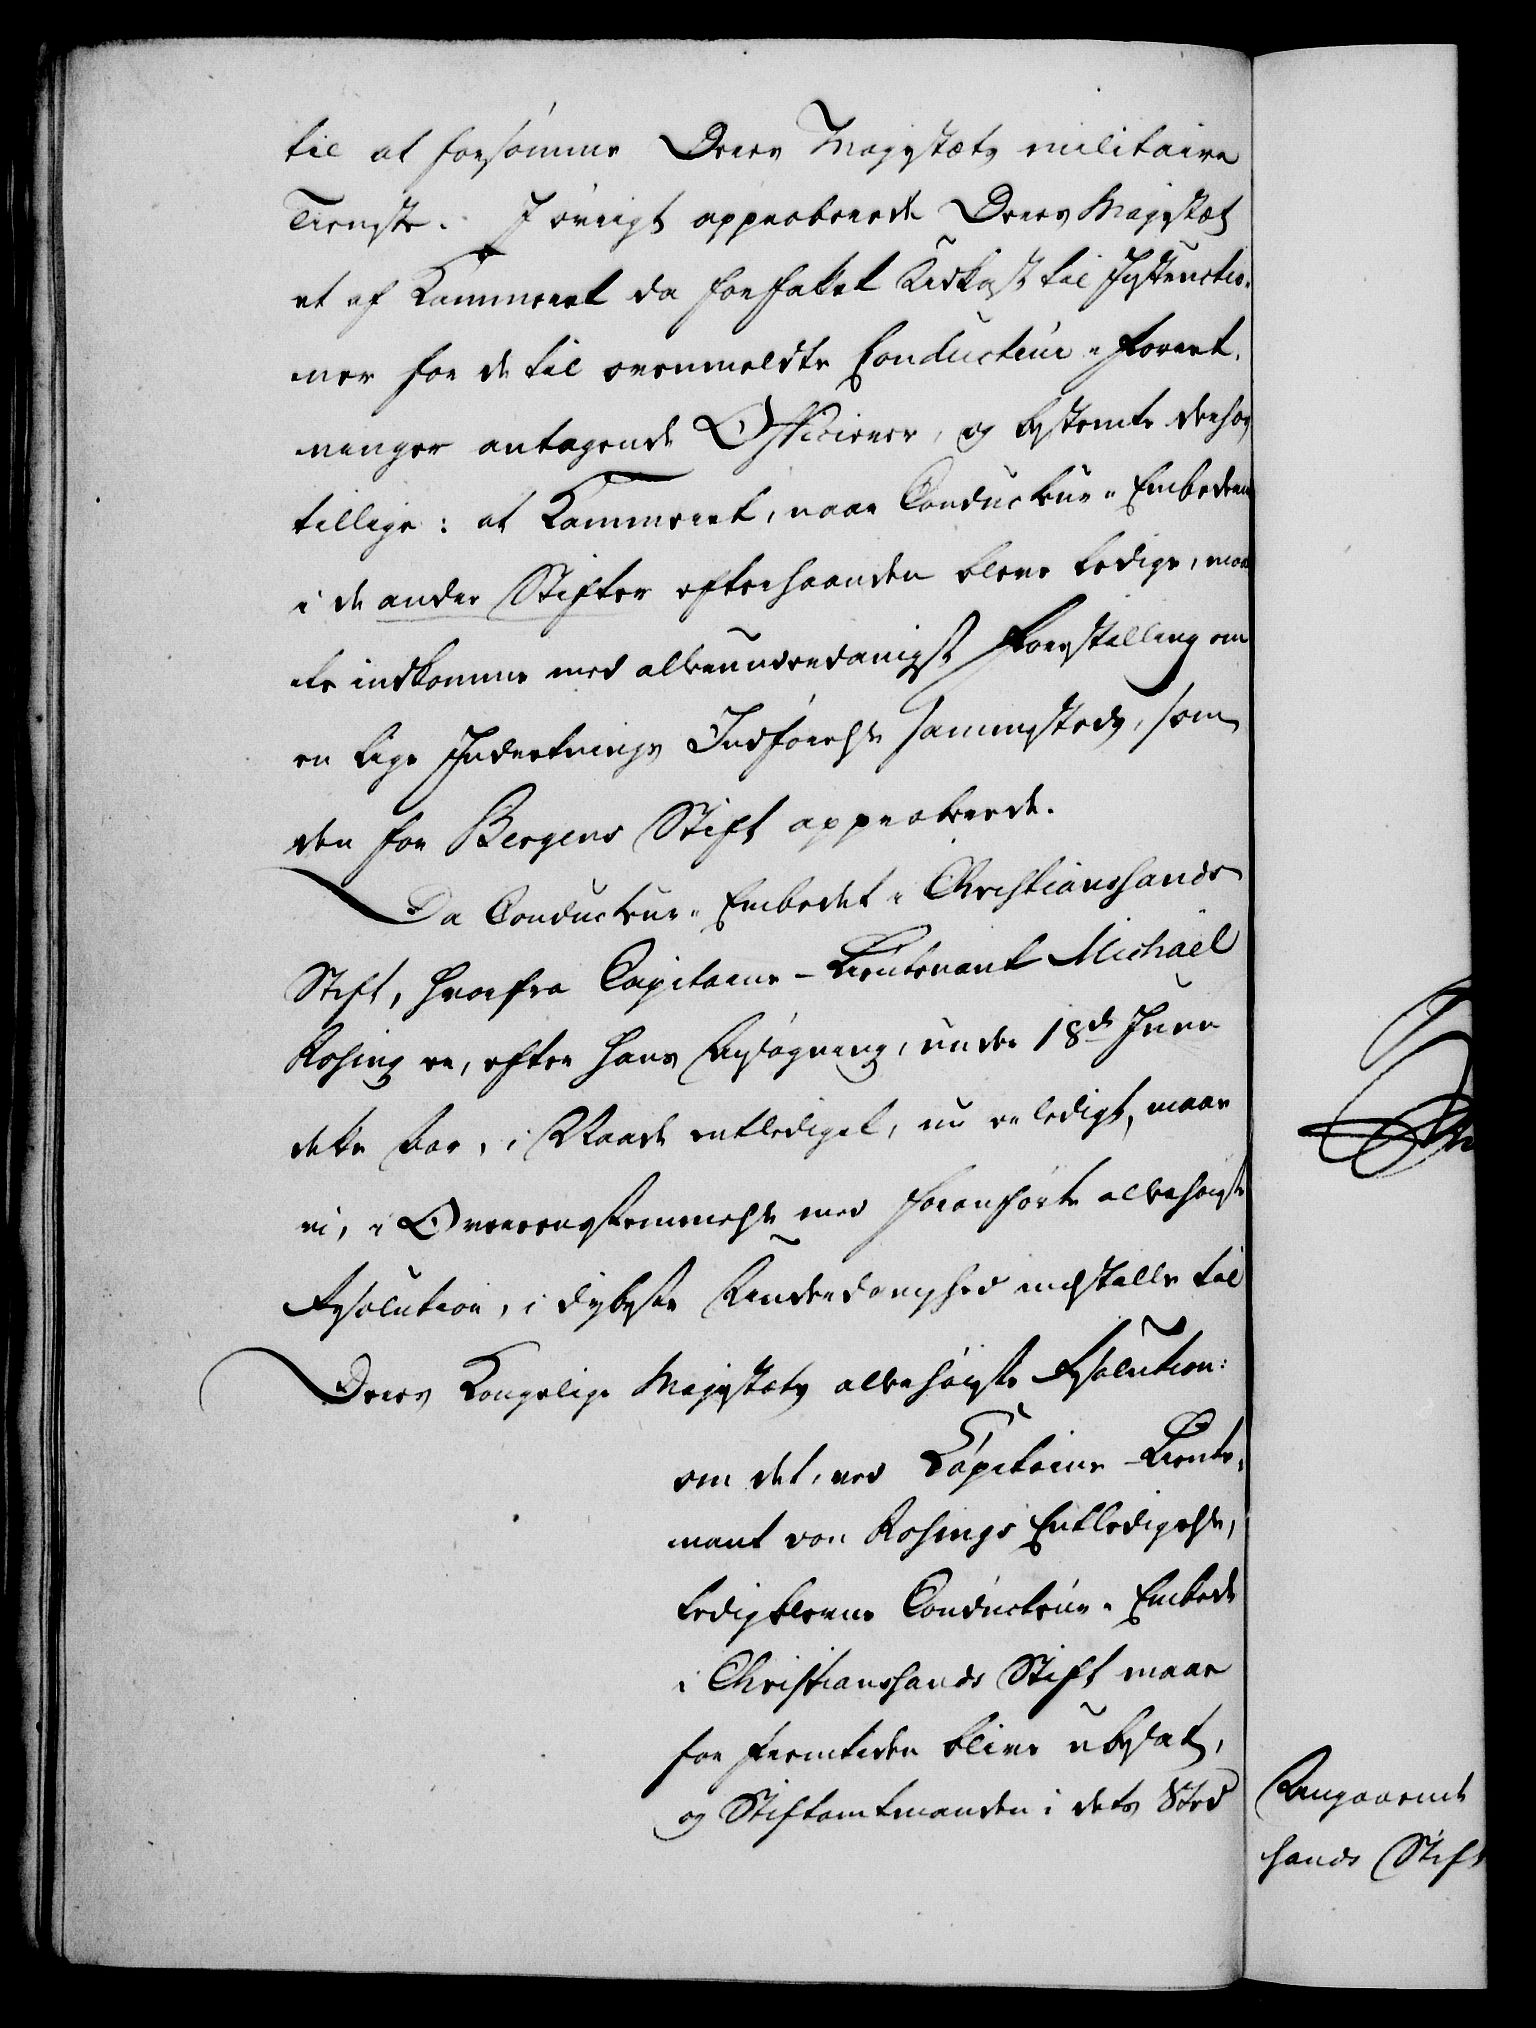 til at forsømme Deres Majestæts militaire
Tieneste. I øvrigt approberede Deres Majestæt
et af Kammeret da forfattet Udkast til Instructio-
ner for de til ovenmeldte Conducteur-Forret-
ninger antagende Officierer, og bestemte derhos
tillige: at Kammeret, naar Conducteur-Embederne
i de andre Stifter efterhaanden bleve ledige, maat-
te indkomme med allerunderdanigst Forestilling om
en lige Indretnings Indførelse sammesteds, som
den for Bergens Stift approberede.
Da Conducteur-Embedet i Christianssands
Stift, hvorfra Capitaine-Lieutenant Michaël
Rosing er, efter hans Ansøgning, under 18de Junii
dette Aar, i Naade entlediget, nu er ledigt, maae
vi, i Overeensstemmelse med foranførte allerhøieste
Resolution, i dybeste Underdanighed indstille til
Deres Kongelige Majestæts allerhøieste Resolution:
om det, ved Capitaine-Lieute-
nant von Rosings Entledigelse,
ledigblevne Conducteur-Embede
i Christianssands Stift maae
for Fremtiden blive ubesat,
og Stiftamtmanden i dets Sted
Angaaende
sands Stift